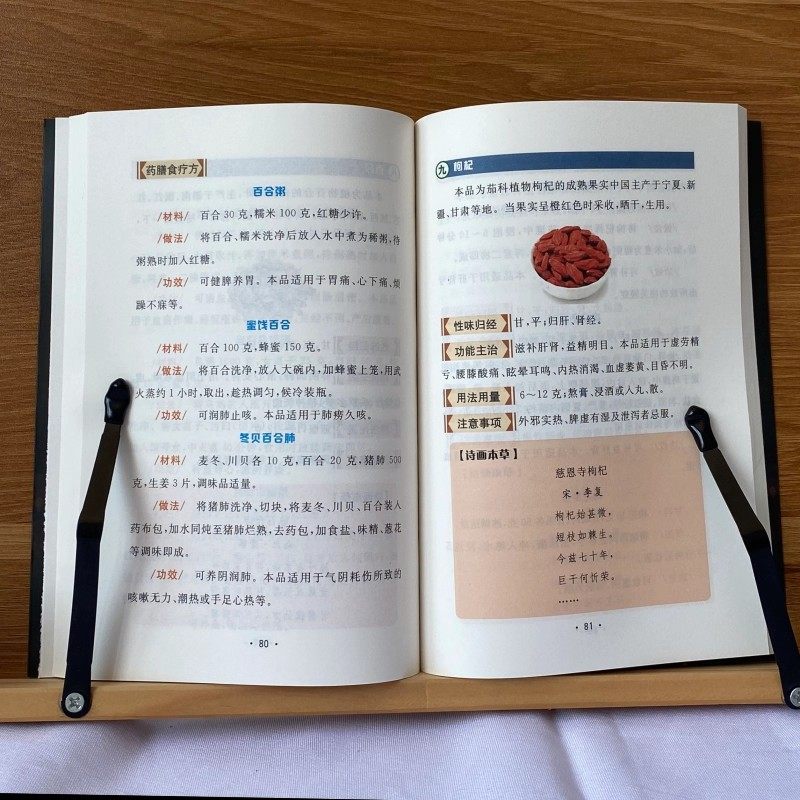 药膳食疗方
百合粥
/材料/ 百合30克,糯米100克,红糖少许。
/做法/ 将百合、糯米洗净后放入水中煮为稀粥,待
粥熟时加入红糖。
/功效/ 可健脾养胃。本品适用于胃痛、心下痛、烦
躁不寐等。
蜜饯百合
/材料/ 百合100克,蜂蜜150克。
/做法/ 将百合洗净,放入大碗内,加蜂蜜上笼,用武
火蒸约1小时,取出,趁热调匀,候冷装瓶。
/功效/ 可润肺止咳。本品适用于肺痨久咳。
冬贝百合肺
/材料/ 麦冬、川贝各10克,百合20克,猪肺500
克,生姜3片,调味品适量。
/做法/ 将猪肺洗净、切块,将麦冬、川贝、百合装入
药布包,加水同炖至猪肺烂熟,去药包,加食盐、味精、葱花
等调味即成。
/功效/ 可养阴润肺。本品适用于气阴耗伤所致的
咳嗽无力、潮热或手足心热等。
· 80 ·
九 枸杞
本品为茄科植物枸杞的成熟果实中国主产于宁夏、新
疆、甘肃等地。当果实呈橙红色时采收,晒干,生用。
性味归经 甘,平;归肝、肾经。
功能主治 滋补肝肾,益精明目。本品适用于虚劳精
亏、腰膝酸痛、眩晕耳鸣、内热消渴、血虚萎黄、目昏不明。
用法用量 6~12克;熬膏、浸酒或入丸、散。
注意事项 外邪实热、脾虚有湿及泄泻者忌服。
【诗画本草】
慈恩寺枸杞
宋·李复
枸杞始甚微,
短枝如棘生。
今兹七十年,
巨干何忻荣。
……
· 81 ·